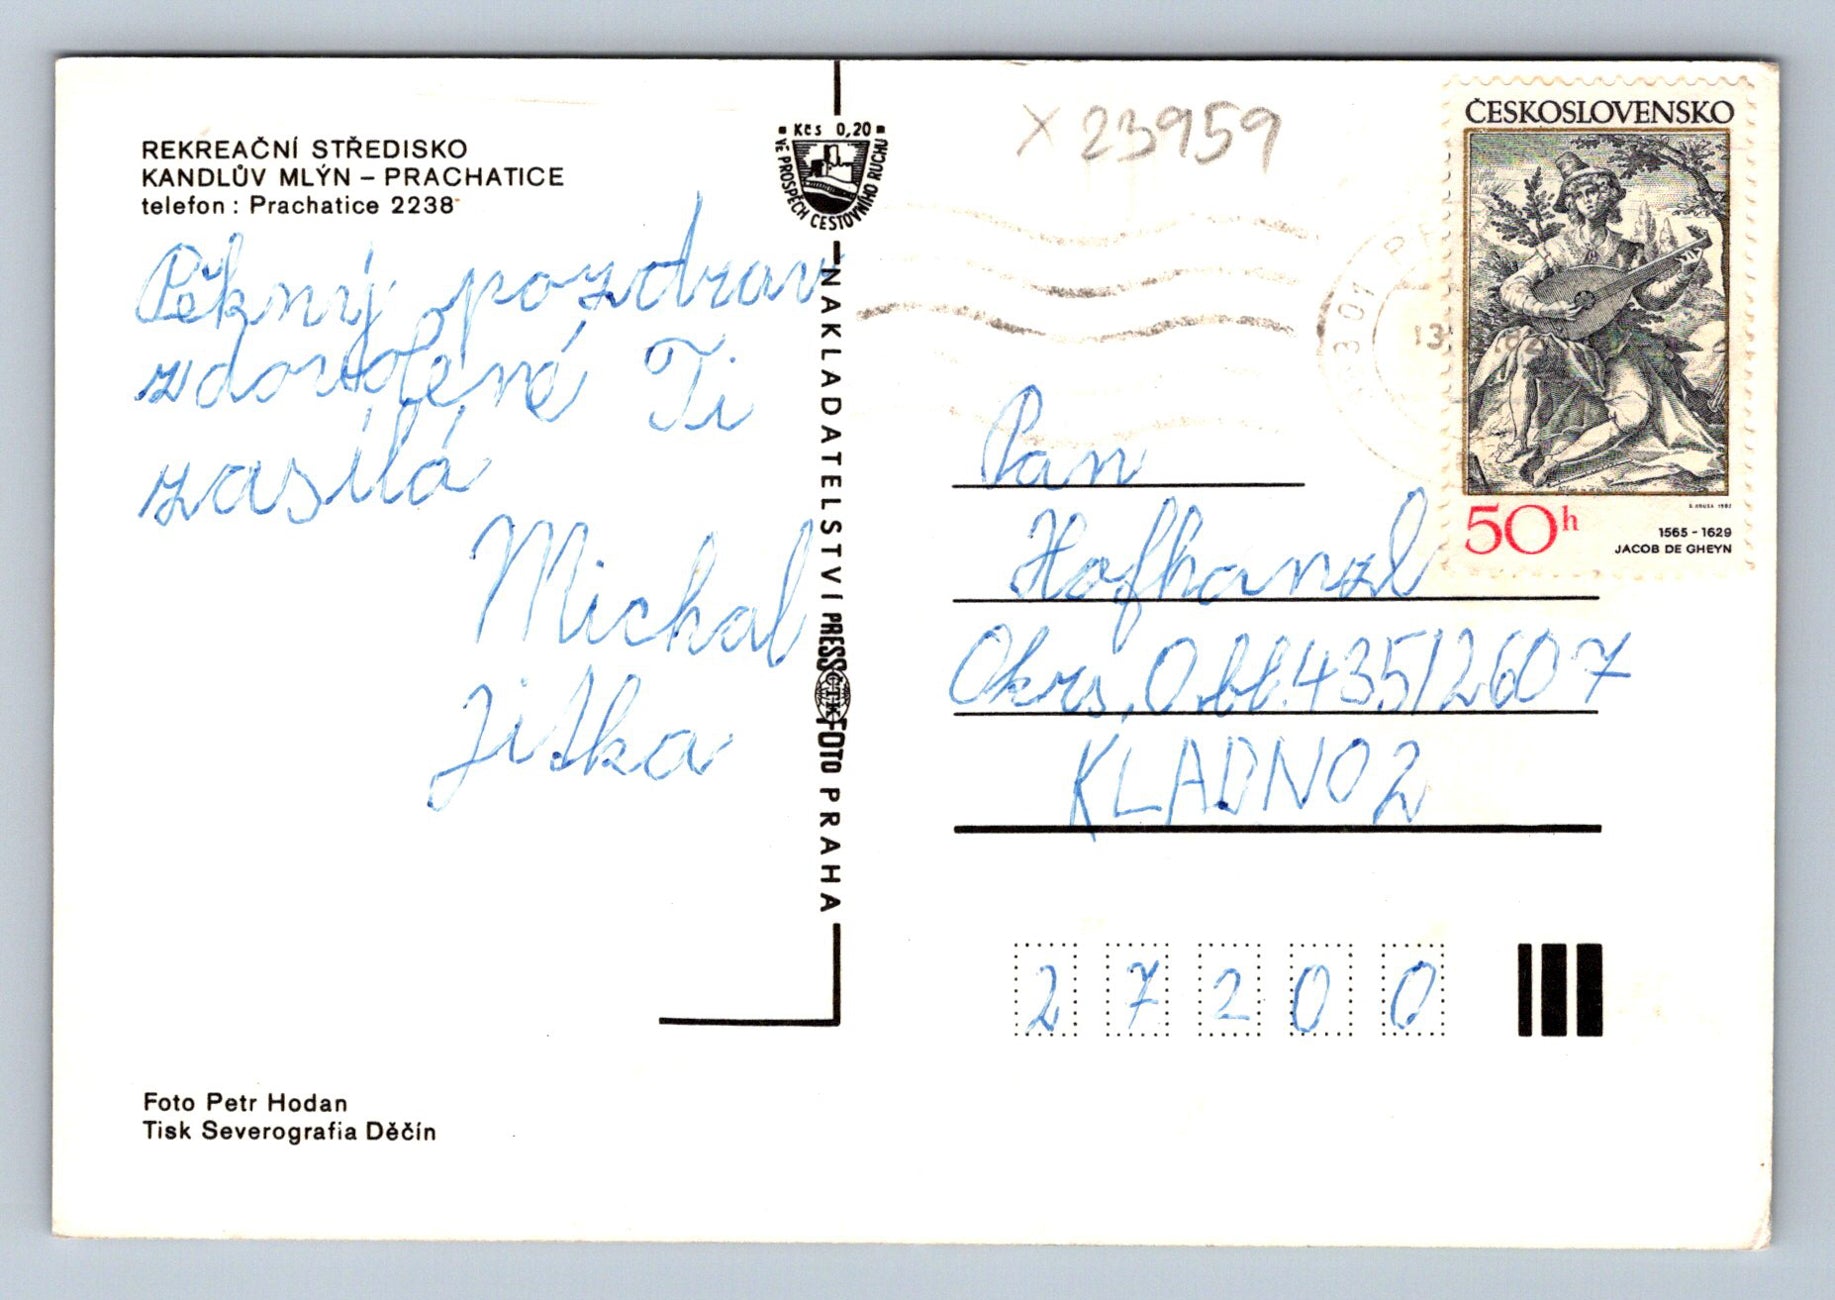 REKREAČNÍ STŘEDISKO
KANDLŮV MLÝN – PRACHATICE
telefon : Prachatice 2238
Pěkný pozdrav
z dovolené Ti
zasílá
Michal
Jitka
Foto Petr Hodan
Tisk Severografia Děčín
Kčs 0,20
VE PROSPĚCH CESTOVNÍHO RUCHU
NAKLADATELSTVÍ PRESSFOTO PRAHA
ČTK
X 23959
383 01
13.
ČESKOSLOVENSKO
50h
1565 - 1629
JACOB DE GHEYN
Pan
Hofhanzl
Okrs. O bl. 435/2607
KLADNO 2
27200